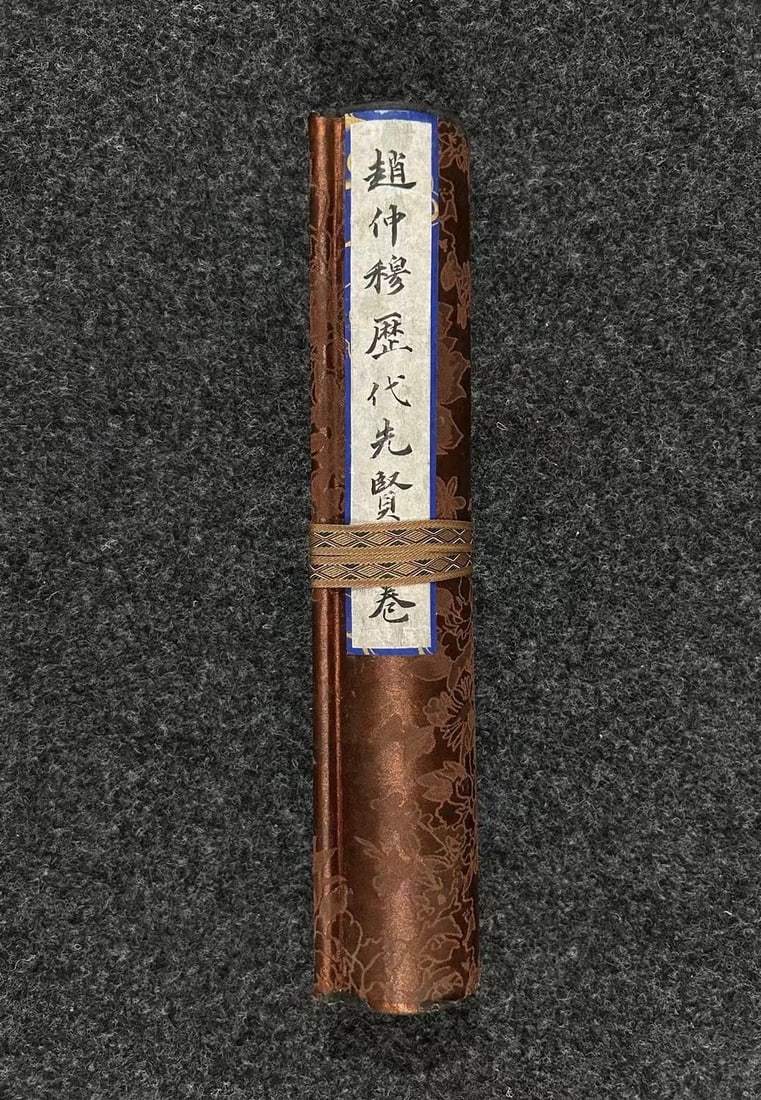 趙仲穆歷代先賢卷